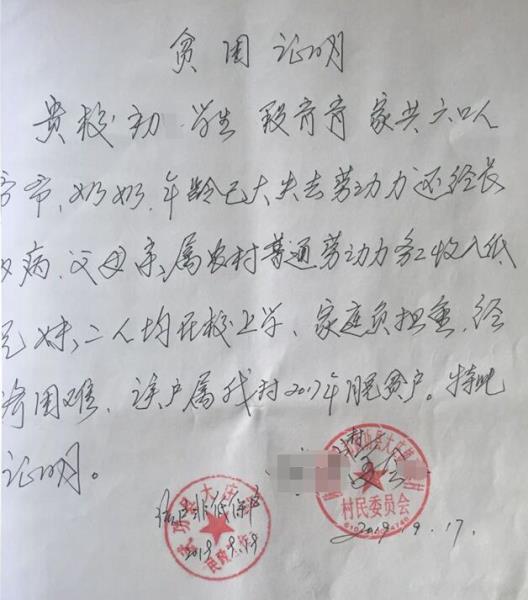 贫困证明
贵校初 学生 段育育 家共六口人
爷爷、奶奶、年龄已大失去劳动力还经长
病、父母亲、属农村普通劳动力务工收入低
兄妹、二人均在校上学、家庭负担重、经
济困难、该户属我村2017年脱贫户。特此
证明。
村民委员会
2019.9.17.
非低保户